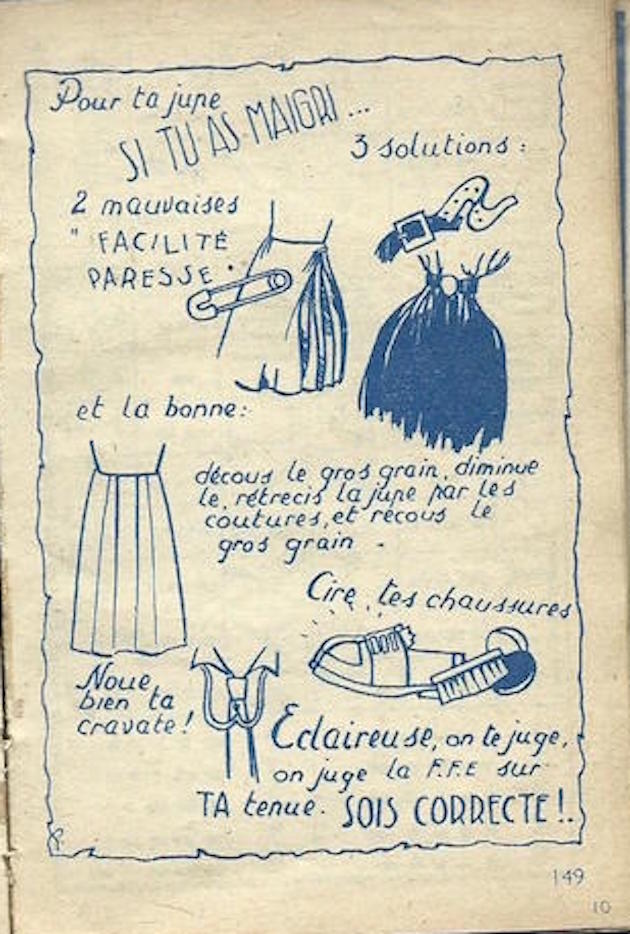 Pour ta jupe
SI TU AS MAIGRI...
3 solutions :
2 mauvaises
" FACILITÉ
PARESSE "
et la bonne :
découds le gros grain, diminue
le, rétrecis la jupe par les
coutures, et recous le
gros grain.
Cire tes chaussures
Noue
bien ta
cravate !
Eclaireuse, on te juge,
on juge la F.F.E sur
TA tenue. SOIS CORRECTE !.
149
10